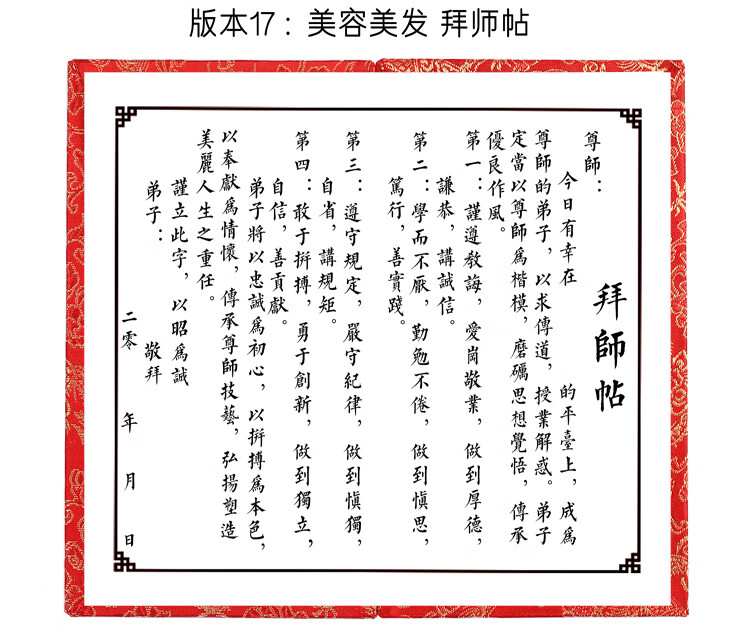 版本17：美容美发 拜师帖
拜師帖
尊師：
今日有幸在 的平臺上，成爲
尊師的弟子，以求傳道，授業解惑。弟子
定當以尊師爲楷模，磨礪思想覺悟，傳承
優良作風。
第一：謹遵教誨，愛崗敬業，做到厚德，
謙恭，講誠信。
第二：學而不厭，勤勉不倦，做到慎思，
篤行，善實踐。
第三：遵守規定，嚴守紀律，做到慎獨，
自省，講規矩。
第四：敢于拼搏，勇于創新，做到獨立，
自信，善貢獻。
弟子將以忠誠爲初心，以拼搏爲本色，
以奉獻爲情懷，傳承尊師技藝，弘揚塑造
美麗人生之重任。
謹立此字，以昭爲誠
弟子： 敬拜
二零 年 月 日